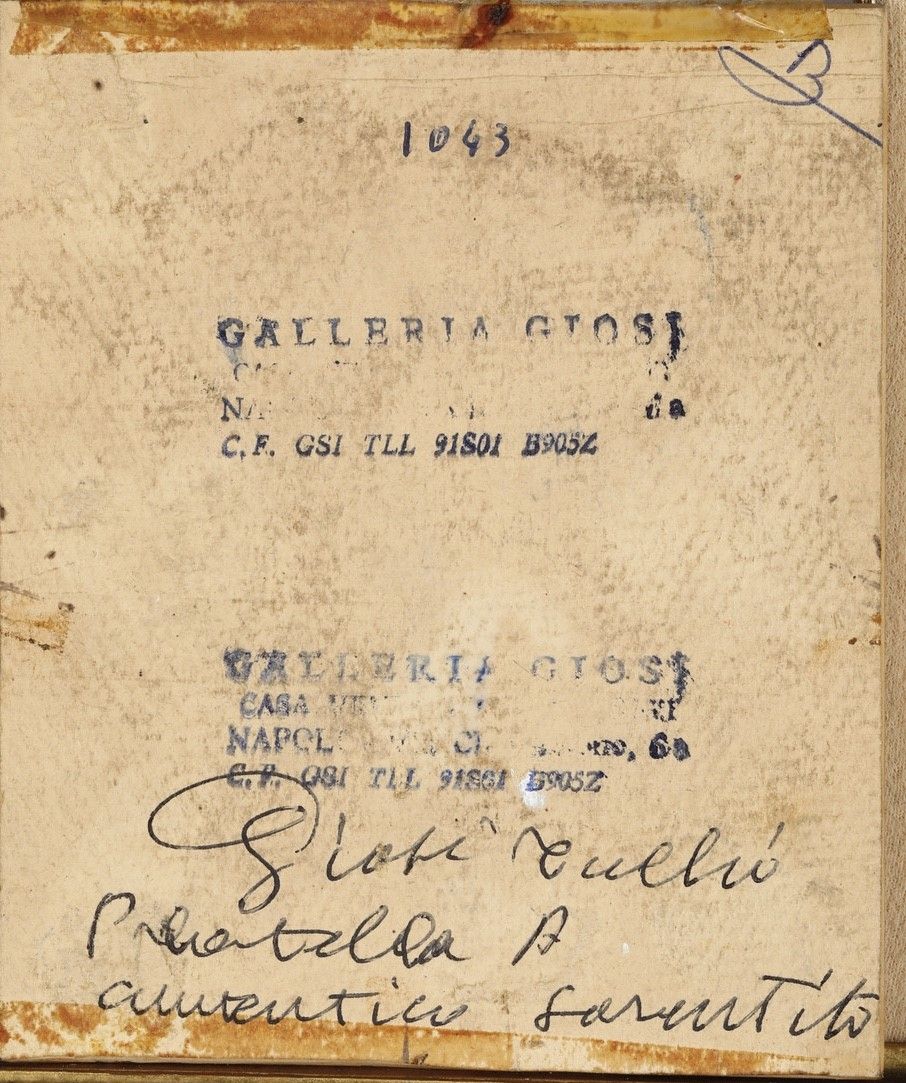 B
1043
GALLERIA GIOSI
6a
C.F. GSI TLL 91S01 B905Z
GALLERIA GIOSI
CASA
NAPOL 6a
C.F. GSI TLL 91S01 B905Z
Giosi Tullio
Pratella A
autentico garantito